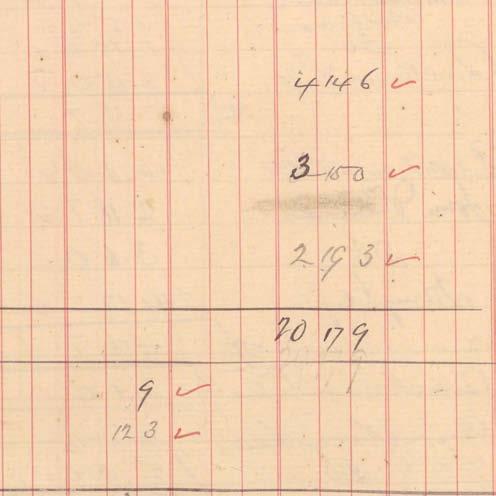 4146 ✓
3150 ✓
2193 ✓
20179
9 ✓
123 ✓